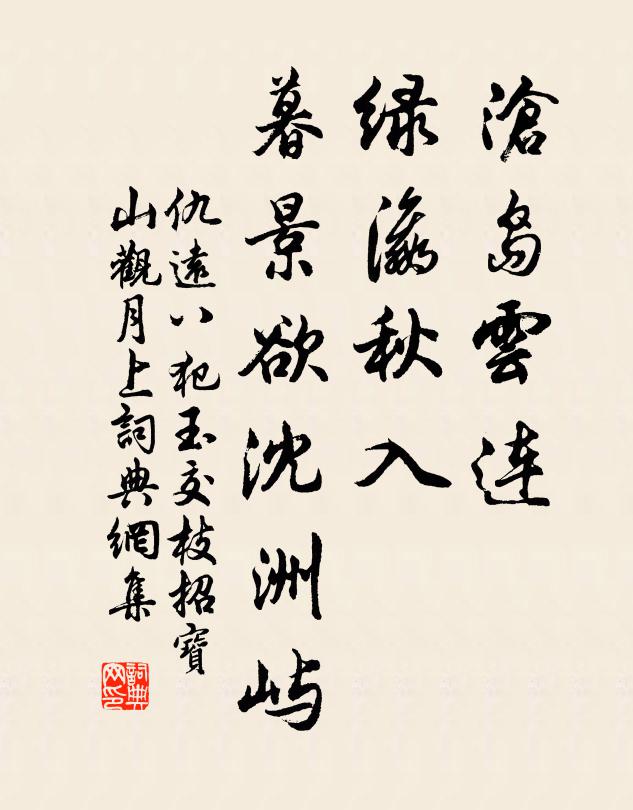 滄島雲連
緑瀛秋入
暮景欲沈洲屿
仇遠八犯玉交枝招寶
山觀月上詞典網集
詞典
网印